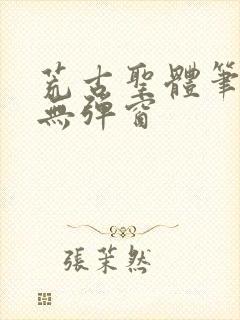 荒古聖體筆
無彈窗
張茉然